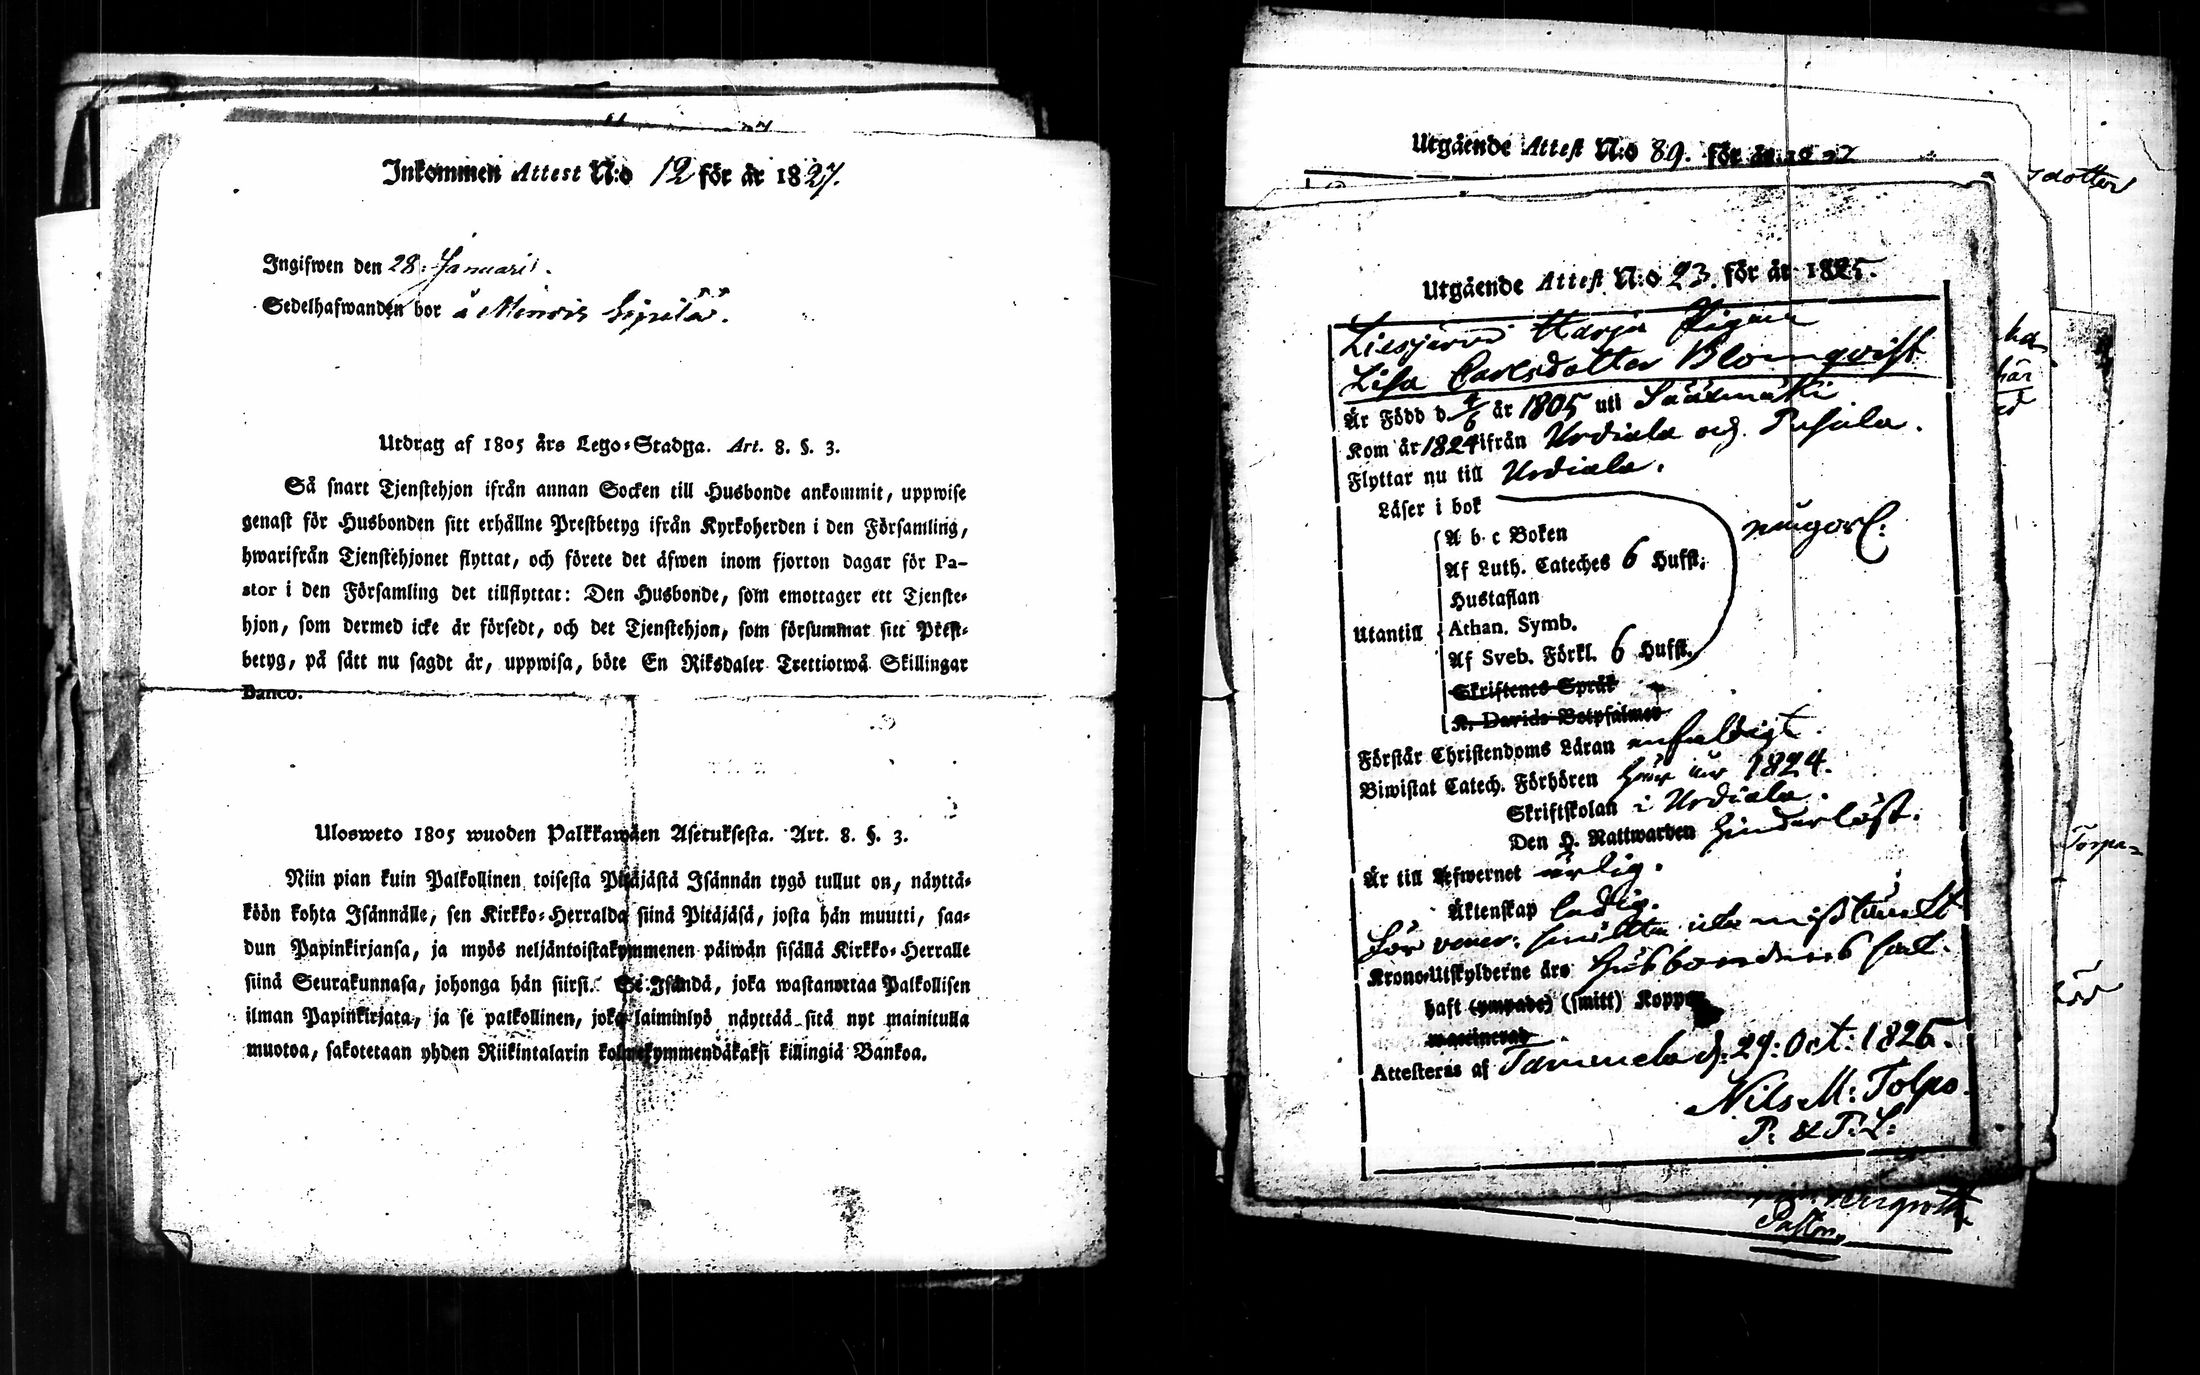 Inkommen Attest N:o 12 för år 1827.
Ingifwen den 28. Januarii.
Sedelhafwanden bor å
Utdrag af 1805 års Lego-Stadga. Art. 8. §. 3.
Så snart Tjenstehjon ifrån annan Socken till Husbonde ankommit, uppwise
genast för Husbonden sitt erhållne Prestbetyg ifrån Kyrkoherden i den Församling,
hwarifrån Tjenstehjonet flyttat, och förete det äfwen inom fjorton dagar för Pa-
stor i den Församling det tillflyttat: Den Husbonde, som emottager ett Tjenste-
hjon, som dermed icke är försedt, och det Tjenstehjon, som försummar sitt Prest-
betyg, på sätt nu sagdt är, uppwisa, böte En Riksdaler Trettiotwå Skillingar
Banco.
Ulosweto 1805 wuoden Palkkawäen Asetuksesta. Art. 8. §. 3.
Niin pian kuin Palkollinen toisesta Pitäjästä Isännän tygö tullut on, näyttä-
köön kohta Isännälle, sen Kirkko-Herralda siinä Pitäjäsä, josta hän muutti, saa-
dun Papinkirjansa, ja myös neljäntoistakymmenen päiwän sisällä Kirkko-Herralle
siinä Seurakunnasa, johonga hän siirsi. Se Isändä, joka wastanottaa Palkollisen
ilman Papinkirjata, ja se palkollinen, joka laiminlyö näyttää sitä nyt mainitulla
muotoa, sakotetaan yhden Riikintalarin kolmekymmendäkaksi killingiä Bankoa.
Utgående Attest N:o 89. för år 1827
sdotter
Utgående Attest N:o 23. för år 1825.
Liesjervi Harju Pigan
Lisa Carlsdotter Blomqvist
Är Född d. 4/6 år 1805 uti Sääxmäki
Kom år 1824 ifrån Urdiala och Pusula.
Flyttar nu till Urdiala.
Läser i bok
A b c Boken
Af Luth. Cateches 6 Hufst.
Hustaflan
Utantill Athan. Symb.
Af Sveb. Förkl. 6 Hufst.
någorl:
Skriftenes Språk
K. Davids Botpsalmer
Förstår Christendoms Läran enfaldigt.
Biwistat Catech. Förhören här åår 1824.
Skriftskolan i Urdiala.
Den H. Nattwarden hinderlöst.
Är till Lefwernet ärlig.
Äktenskap ledig.
för vener: smittan icke misstänckt
Krono-Utskylderne äro Husbondens sak.
haft (ympade) (smitt) Koppor
waccinerad
Attesteras af Tammela d. 29: Oct: 1825.
Nils M: Tolpo.
P: & P: L:
Pastor
Torpa-